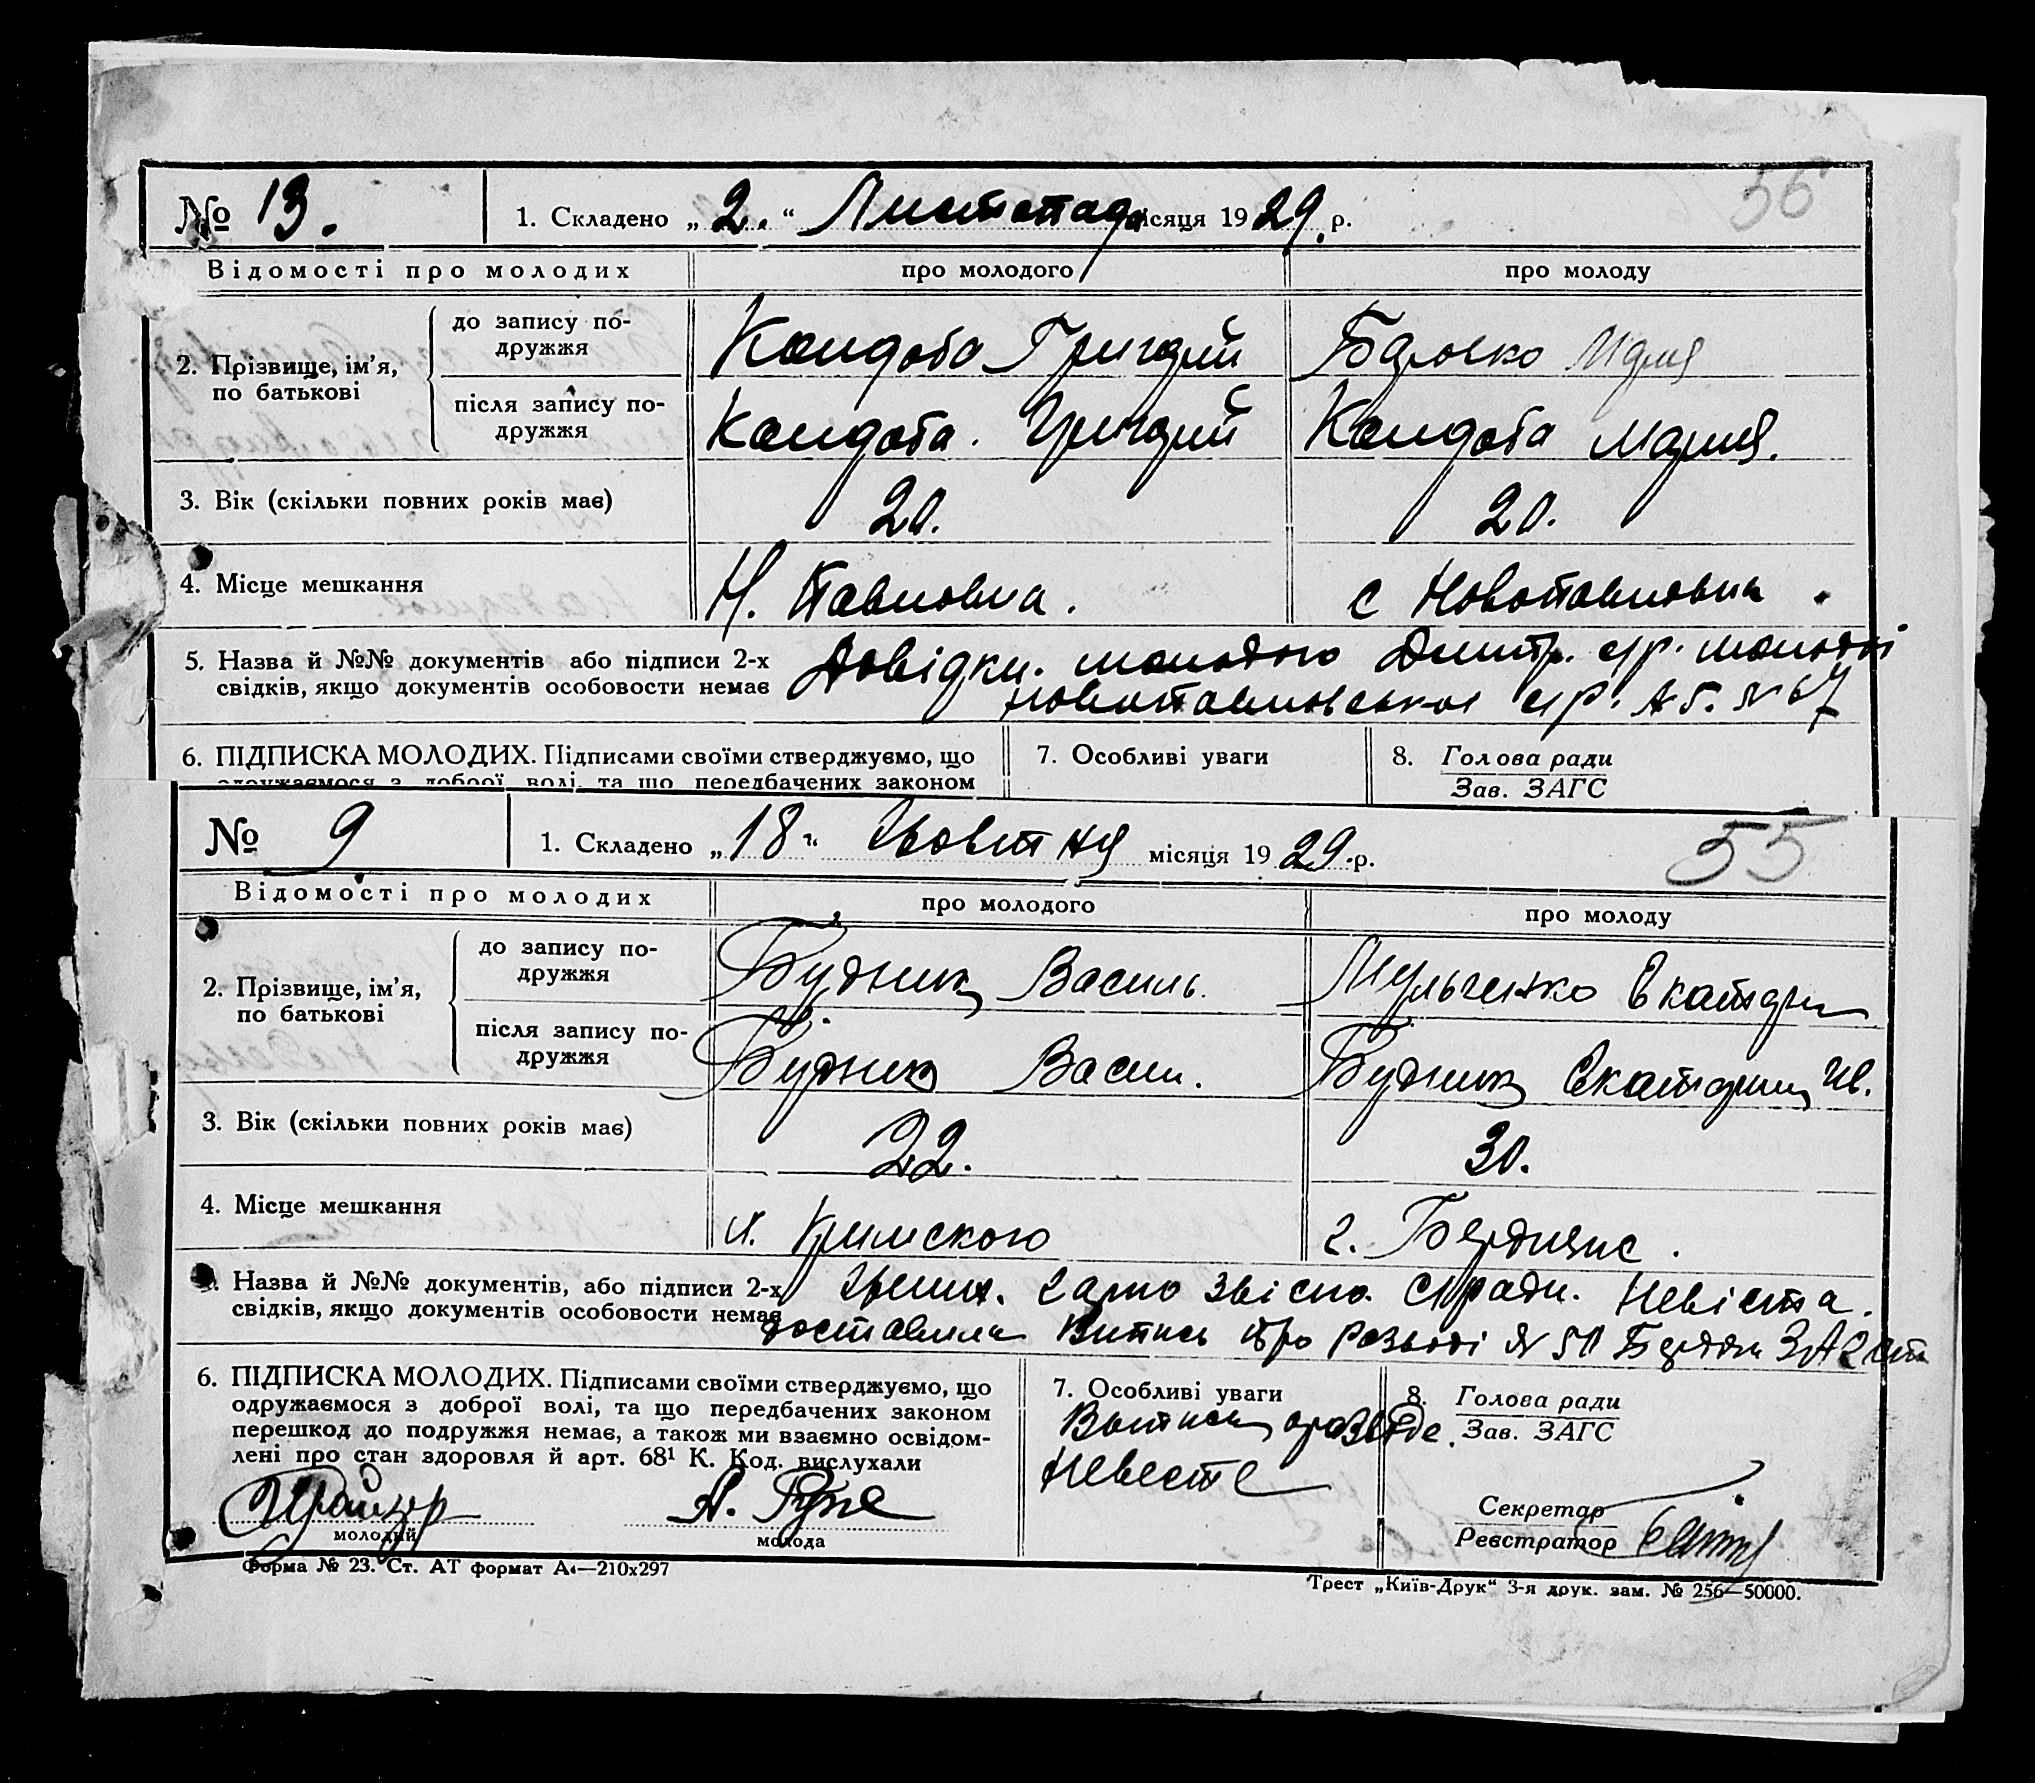 56
№ 13. 1. Складено „2.“ Листопада місяця 1929. р.
Відомості про молодих про молодого про молоду
2. Прізвище, ім'я, по батькові
до запису подружжя Григорий Мария
після запису подружжя Григорий Мария.
3. Вік (скільки повних років має) 20. 20.
4. Місце мешкання Н. Павловка. с Новопавловка.
5. Назва й №№ документів або підписи 2-х Довідки. молодого Дмитр. с/р. молодої
свідків, якщо документів особовости немає новопавловської с/р. № 67
6. ПІДПИСКА МОЛОДИХ. Підписами своїми стверджуємо, що 7. Особливі уваги 8. Голова ради
одружаємося з доброї волі, та що передбачених законом Зав. ЗАГС
55
№ 9 1. Складено „18“ Жовтня місяця 1929. р.
Відомості про молодих про молодого про молоду
2. Прізвище, ім'я, по батькові
до запису подружжя Будник Василь. Мульченко Екатерин
після запису подружжя Будник Васил. Будник Екатерина Ив.
3. Вік (скільки повних років має) 22. 30.
4. Місце мешкання х. Кримского г. Бердянс.
Назва й №№ документів, або підписи 2-х с/ради. Невіста.
свідків, якщо документів особовости немає доставила Випись про Розводі № 50
6. ПІДПИСКА МОЛОДИХ. Підписами своїми стверджуємо, що 7. Особливі уваги 8. Голова ради
одружаємося з доброї волі, та що передбачених законом Зав. ЗАГС
перешкод до подружжя немає, а також ми взаємно освідом-
лені про стан здоровля й арт. 68¹ К. Код. вислухали
Невесте
молодий молода
Секретар
Реєстратор
Форма № 23. Ст. АТ формат А4—210х297 Трест „Київ-Друк“ 3-я друк. зам. № 256—50000.